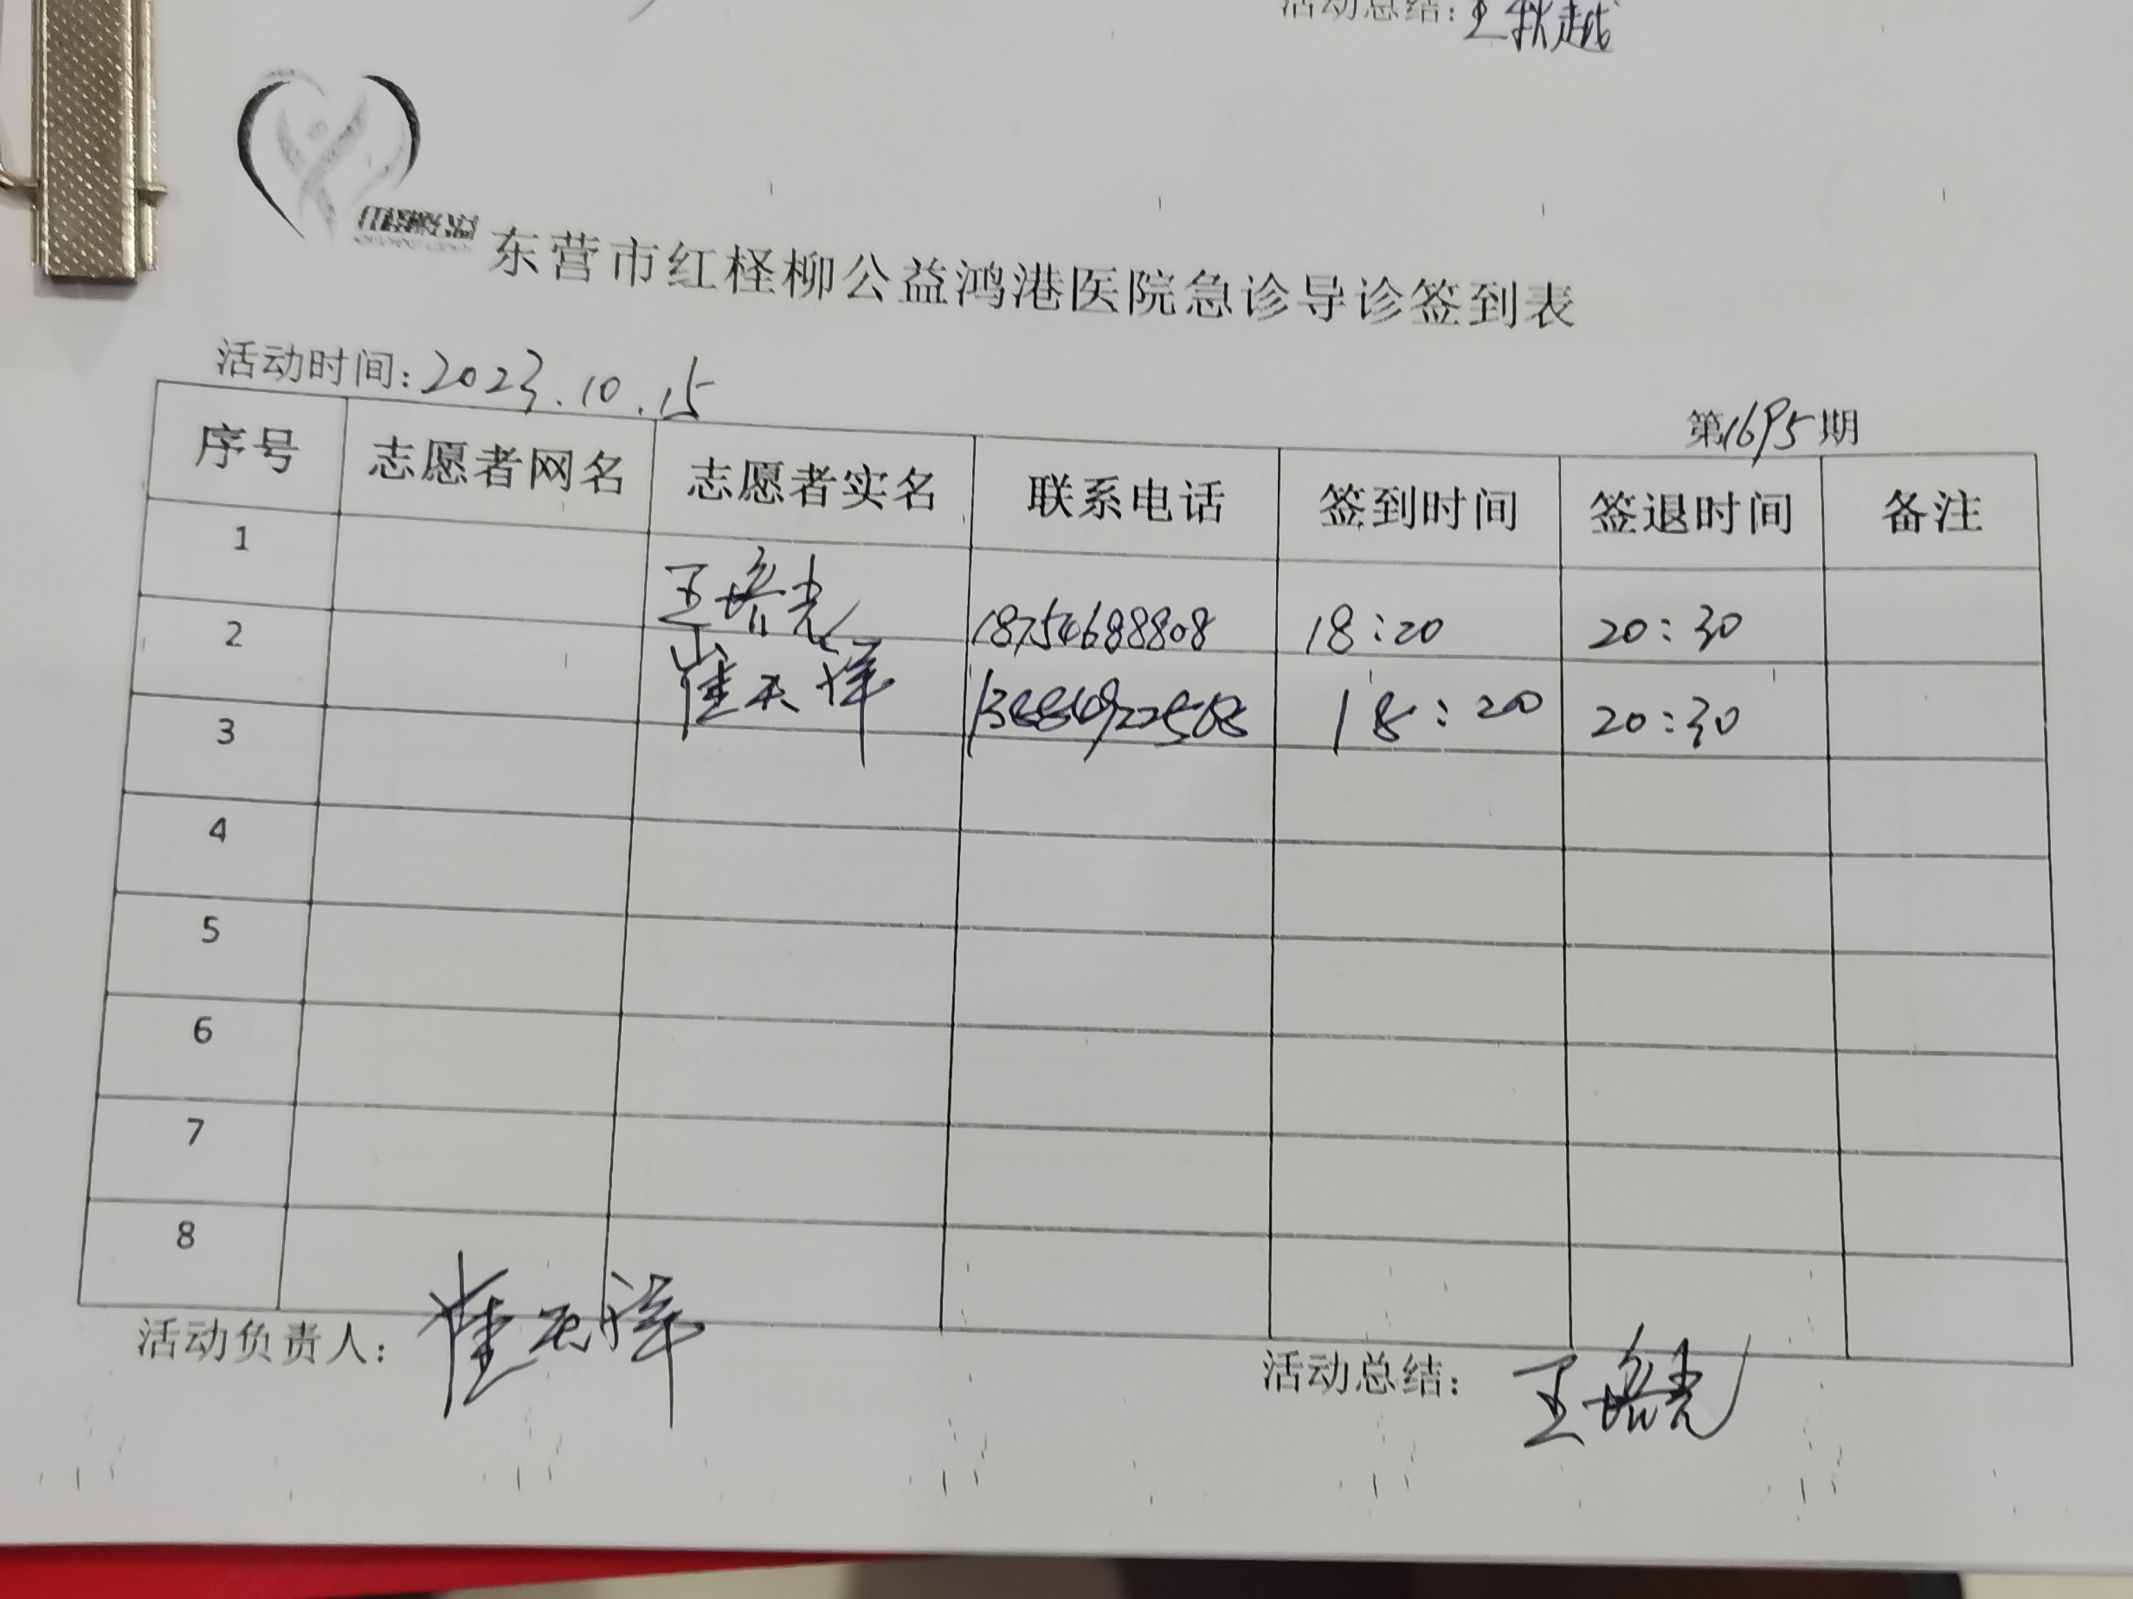 活动总结：王秋越
东营市红柽柳公益鸿港医院急诊导诊签到表
活动时间：2023.10.15
第1695期
序号 志愿者网名 志愿者实名 联系电话 签到时间 签退时间 备注
1 王培光 18754688808 18:20 20:30
2 崔天洋 18:20 20:30
3
4
5
6
7
8
活动负责人：崔天洋 活动总结：王培光